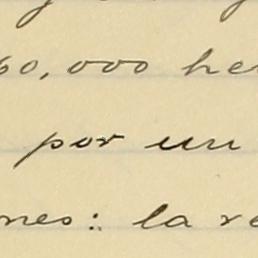 60,000 he
por un
nes: la re